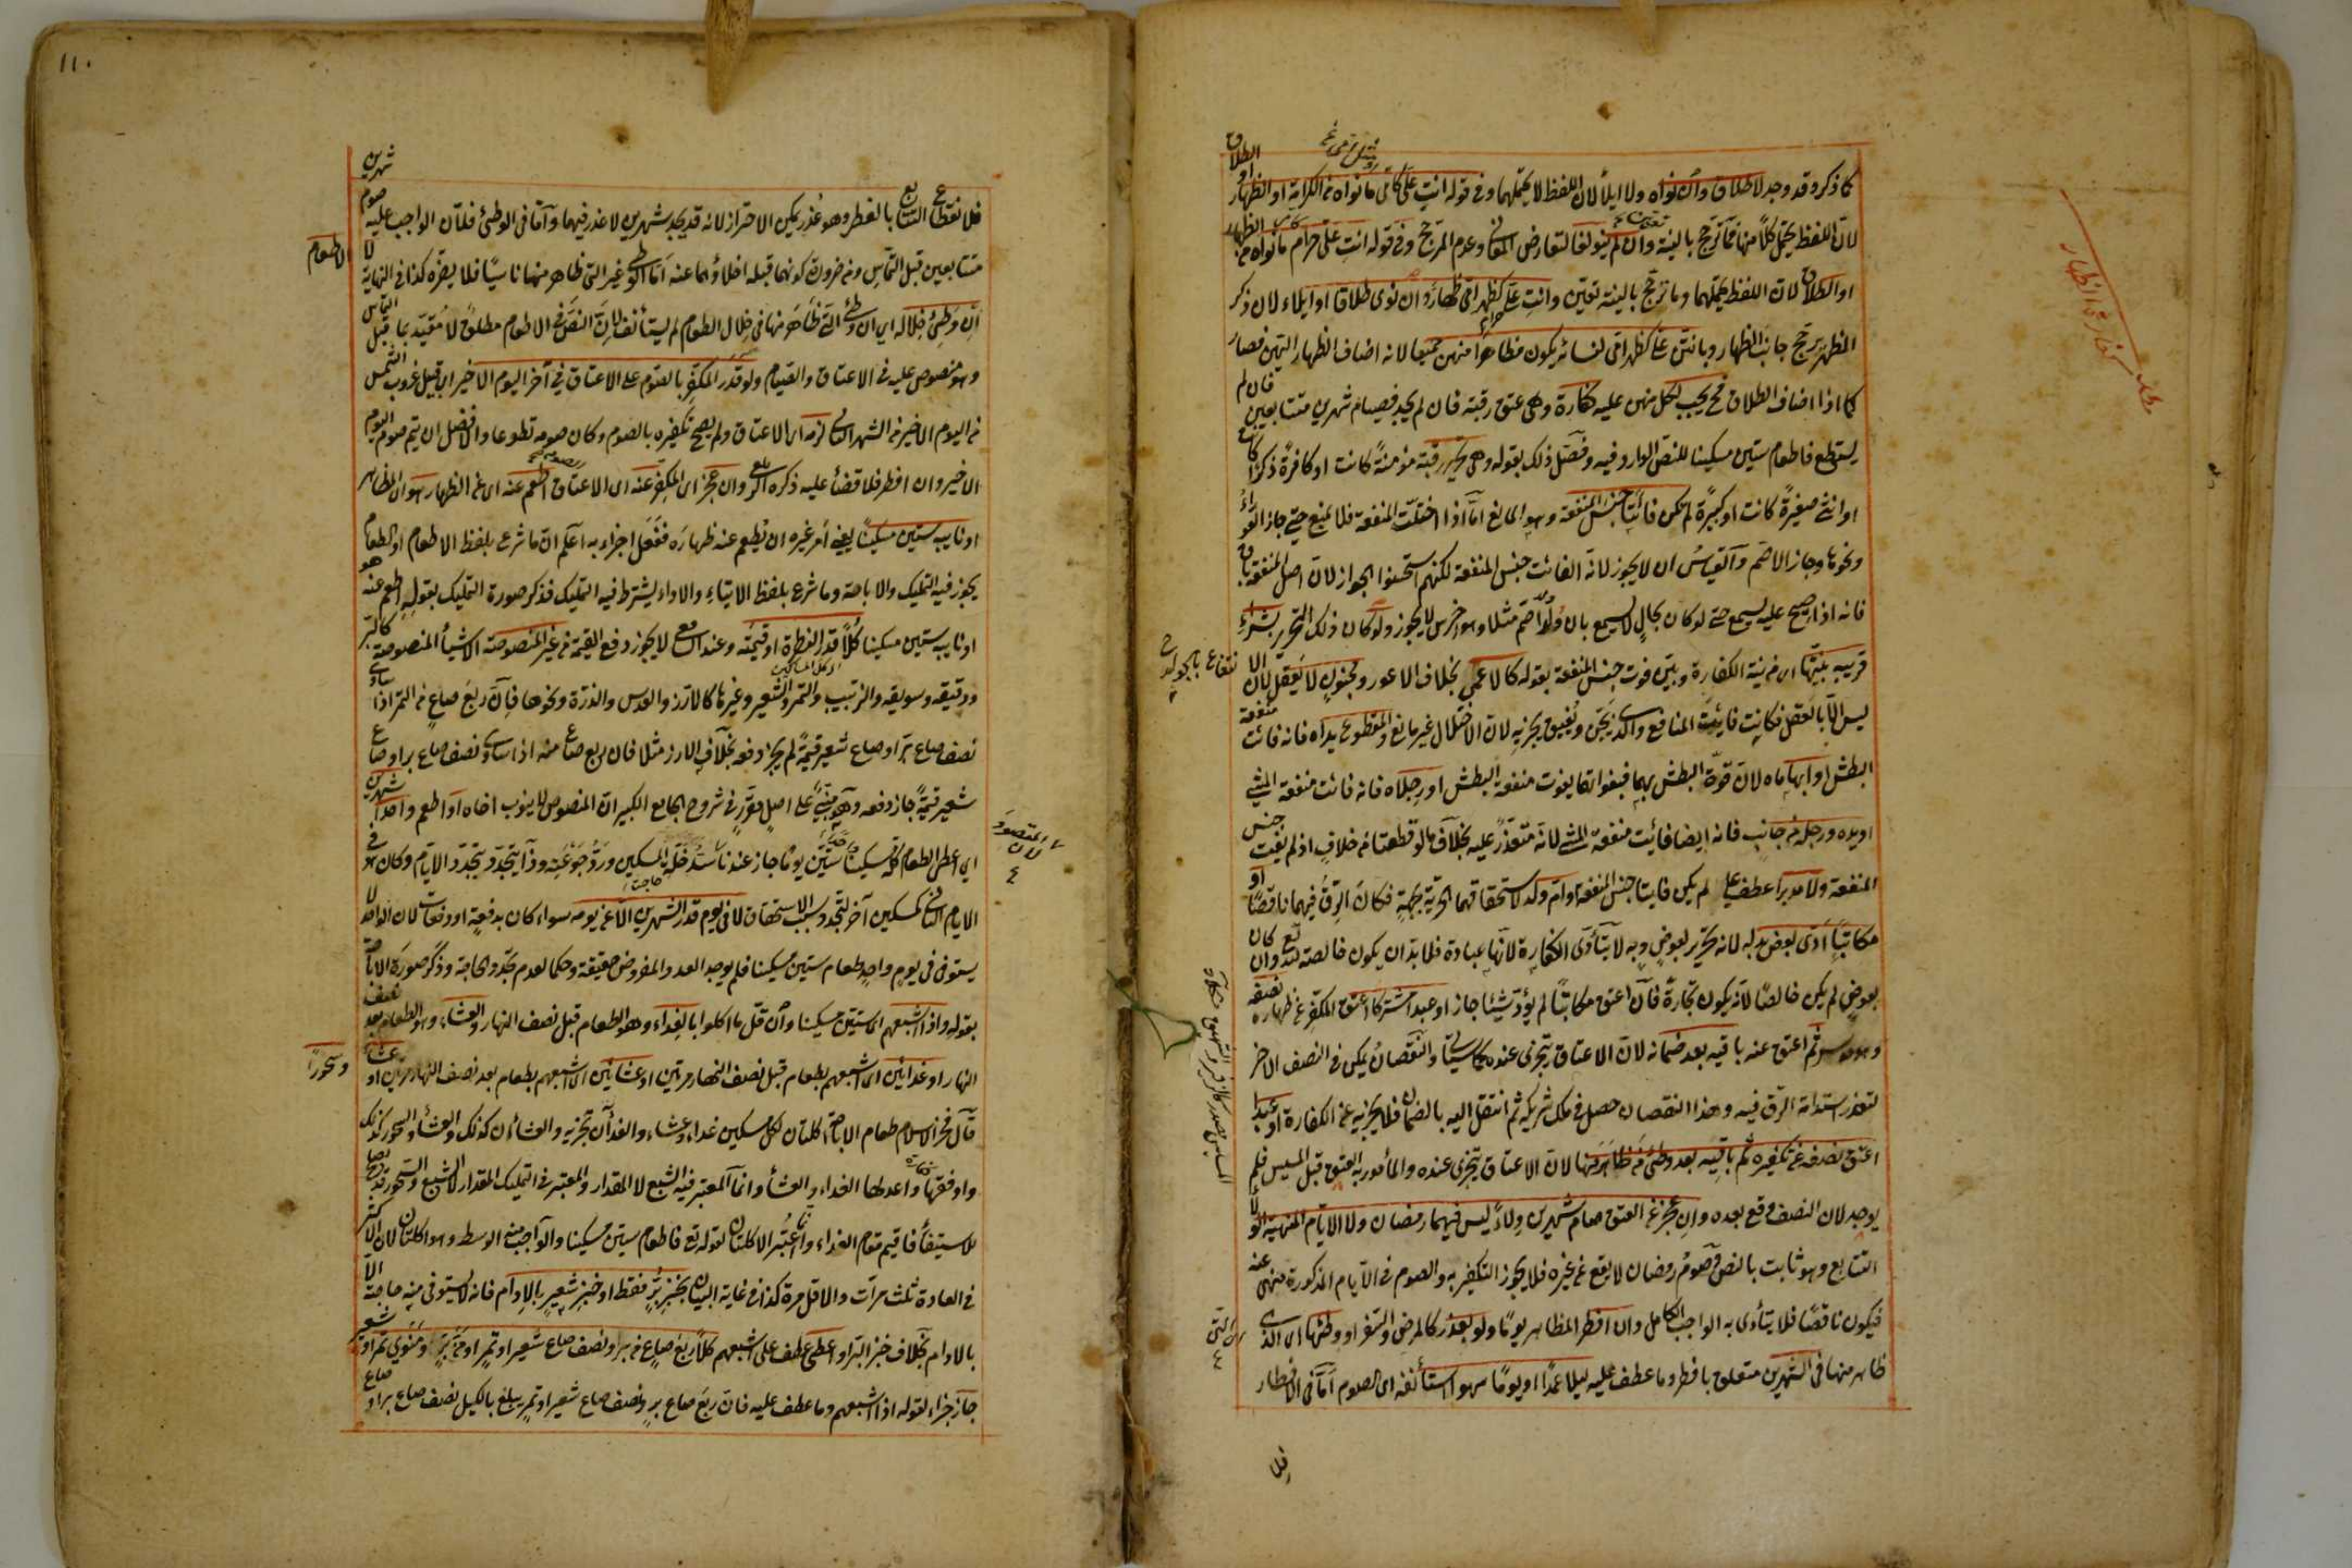 كما ذكر وقد وجد لا طلاق وان نواه ولا ايلأ لان اللفظ لا يحتملهما وفي قوله انت علي كامي ما نواه من الكرامة او الظهار او الطلاق
لان اللفظ يحتمل كلا منها فما ترجح بالنية وان لم ينو لغا لتعارض المعاني وعدم المرجح وفي قوله انت علي حرام كامي ما نواه من الظهار
او الطلاق لان اللفظ يحتملهما وما ترجح بالنية تعين وانت علي حرام كظهر امي ظهار وان نوى طلاقا او ايلاء لان ذكر
الظهر يرجح جانب الظهار وبانتن علي كظهر امي لنسائه يكون مظاهرا منهن جميعا لانه اضاف الظهار اليهن فصار
كما اذا اضاف الطلاق فح يجب لكل منهن عليه كفارة وهي عتق رقبة فان لم يجد فصيام شهرين متتابعين فان لم
يستطع فاطعام ستين مسكينا للنص الوارد فيه وفصل ذلك بقوله وهي تحرير رقبة مؤمنة كانت او كافرة ذكرا كانت
او انثى صغيرة كانت او كبيرة لم يكن فائتا جنس المنفعة وهو المانع اما اذا اختلت المنفعة فلا تمنع حتى جاز العوراء
ونحوها وجاز الاصم والقياس ان لا يجوز لانه الفائت جنس المنفعة لكنهم استحسنوا الجواز لان اصل المنفعة باق
فانه اذا صيح عليه يسمع حتى لو كان بحال لا يسمع بان ولد اصم مثلا وهو اخرس لا يجوز ولو كان ذلك التحرير بشراء
قريبه بنيتها اي من نية الكفارة وبين فوت جنس المنفعة بقوله كالاعمى بخلاف الاعور ومجنون لا يعقل لان الا
نتفاع بالجوارح
ليس الا بالعقل فكانت فائت المنافع والذي يجن ويفيق يجزيه لان الاختلال غير مانع والمقطوع يداه فانه فائت منفعة
البطش او ابهاماه لان قوة البطش بهما فبفواتهما يفوت منفعة البطش او رجلاه فانه فائت منفعة المشي
او يده ورجل من جانب فانه ايضا فائت منفعة المشي لانه متعذر عليه بخلاف ما لو قطعتا من خلاف اذ لم يفت جنس
المنفعة ولا مدبرا عطف على لم يكن فايتا جنس المنفعة او ام ولد لاستحقاقهما الحرية بجهة فكان الرق فيهما ناقصا او
مكاتبا ادى بعض بدله لانه تحرير بعوض وبه لا يتأدى الكفارة لانها عبادة فلا بد ان يكون خالصة لله تع وان كان
بعوض لم يكن خالصا لانه يكون تجارة فان اعتق مكاتبا لم يؤد شيئا جاز او عبدا مشتركا اعتق المكفر عن ظهاره نصفه
وهو موسر ثم اعتق عنه باقيه بعد ضمانه لان الاعتاق يتجزى عنده كما سيأتي والنقصان يمكن في النصف الاخر
لتعذر استدامة الرق فيه وهذا النقصان حصل في ملك شريكه ثم انتقل اليه بالضمان فلا يجزيه عن الكفارة او عبدا
اعتق نصفه عن تكفيره ثم باقيه بعد وطئ من ظاهر منها لان الاعتاق يتجزى عنده والمأمور به العتق قبل المسيس فلم
يوجد لان النصف وقع بعده وان عجز عن العتق صام شهرين ولاء ليس فيهما رمضان ولا الايام المنهية لان
التتابع وهو ثابت بالنص وصوم رمضان لا يقع عن غيره فلا يجوز التكفير به والصوم في الايام المذكورة منهى عنه
فيكون ناقصا فلا يتأدى به الواجب الكامل وان افطر المظاهر يوما ولو بعذر كالمرض والسفر او وطئها اي التي
ظاهر منها في الشهرين متعلق بافطر وما عطف عليه ليلا عمدا او يوما سهوا استأنف اي الصوم اما في الافطار
فلا
مطلب كفارة الظهار
١١٠
فلا نقطاع التتابع بالفطر وهو عذر يمكن الاحتراز لانه قد يجد شهرين لا عذر فيهما واما في الوطئ فلان الواجب عليه صوم شهرين
متتابعين قبل التماس ومن ضرورة كونهما قبله اخلاؤهما عنه اما الوطئ غير التي ظاهر منها ناسيا فلا يضره كذا في النهاية لا الاطعام
ان وطئ خلاله اي ان وطئ التي ظاهر منها في خلال الطعام لم يستأنف لان النص في الاطعام مطلق لا مقيد بما قبل التماس
وهو منصوص عليه في الاعتاق والصيام ولو قدر المكفر بالصوم على الاعتاق في آخر اليوم الاخير اي قبيل غروب الشمس
من اليوم الاخير من الشهر الثاني لزمه اي الاعتاق ولم يصح تكفيره بالصوم وكان صومه تطوعا والافضل ان يتم صوم اليوم
الاخير وان افطر فلا قضأ عليه ذكره الزيلعي وان عجز اي المكفر عنه اي الاعتاق اطعم عنه اي عن الظهار هو اي المظاهر
او نايبه ستين مسكينا يعني امر غيره ان يطعم عنه ظهاره ففعل اجزاه به اعلم ان ما شرع بلفظ الاطعام او الطعام
يجوز فيه التمليك والاباحة وما شرع بلفظ الايتاء والاداء يشترط فيه التمليك فذكر صورة التمليك بقوله اطعم عنه هو
او نايبه ستين مسكينا كلا قدر الفطرة او قيمته وعند الشافعي لا يجوز دفع القيمة من غير المنصوصة الاشيأ المنصوصة كالبر
ودقيقه وسويقه والزبيب والتمر والشعير وغيرها كالارز والعدس والذرة ونحوها فان ربع صاع من التمر اذا ساوى
نصف صاع بر او صاع شعير قيمة لم يجز دفعه بخلاف الارز مثلا فان ربع صاع منه اذا ساوى نصف صاع بر او صاع
شعير قيمة جاز دفعه وهو مبني على اصل مقرر في شروح الجامع الكبير ان المنصوص لا ينوب اخاه او اطعم واحدا شهرين
اي اعطى الطعام كله مسكينا واحدا ستين يوما جاز عندنا لان المقصود سد خلة المسكين ورد جوعته وذا يتجدد بتجدد الايام وكان هو في
الايام الثاني كمسكين آخر لتجدد سبب الاستحقاق لا في يوم قدر الشهرين الا عن يومه سواء كان بدفعة او دفعات لان الواحد لا
يستوفى في يوم واحد طعام ستين مسكينا فلم يوجد العدد المفروض حقيقة وحكما لعدم تجدد الحاجة وذكر صورة الاباحة
بقوله واذا اشبعهم اي ستين مسكينا وان قل ما اكلوا بالغداء وهو الطعام قبل نصف النهار والعشاء وهو الطعام بعد نصف
النهار او غدائين اي اشبعهم بطعام قبل نصف النهار مرتين او عشائين اي اشبعهم بطعام بعد نصف النهار مرتين او عشاء وسحورا
قال فخر الاسلام طعام الاباحة اكلتان لكل مسكين غداء وعشاء والغدآن تجزيه والعشاءان كذلك والعشأ والسحور كذلك
واوفقها واعدلها الغداء والعشأ وانما المعتبر فيه الشبع لا المقدار والمعتبر في التمليك المقدار لا الشبع
للاستيفأ فاقيم مقام الغداء وانما اعتبر الاكلتان لقوله تع فاطعام ستين مسكينا والواجب منه الوسط وهو اكلتان لان الاكثر
في العادة ثلث مرات والاقل مرة كذا في غاية البيان بخبز بر فقط او خبز شعير بالادام فانه لا يستوفى منه حاجته الا
بالادام بخلاف خبز البر او اعطى عطف على اشبعهم كلا ربع صاع من بر ونصف صاع شعير او تمر او من بر ومنوي تمر او شعير
جاز جزاء لقوله اذا اشبعهم وما عطف عليه فان ربع صاع بر ونصف صاع شعير او تمر يبلغ بالكيل نصف صاع بر او صاع